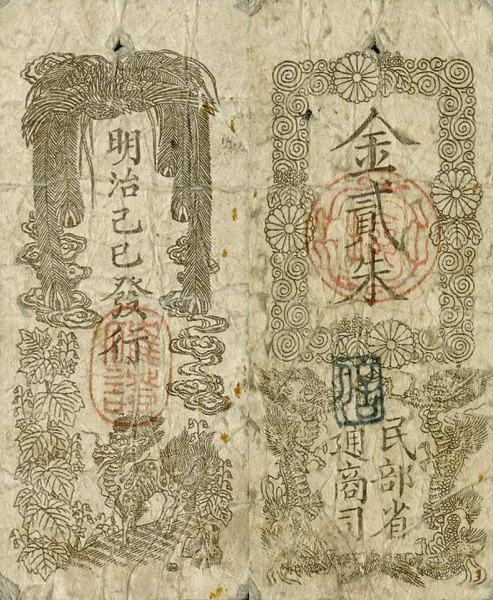 金貳朱
民部省
通商司
明治己巳發行